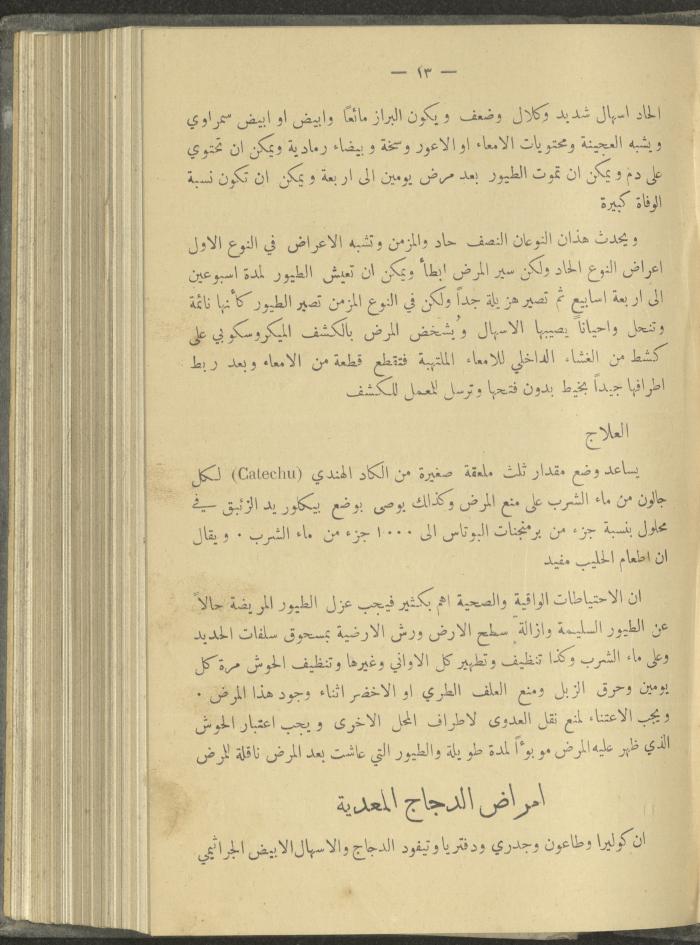 — ١٣ —
الحاد اسهال شديد وكلال وضعف ويكون البراز مائعًا وابيض او ابيض سمراوي
ويشبه العجينة ومحتويات الامعاء او الاعور وسخة وبيضاء رمادية ويمكن ان تحتوي
على دم ويمكن ان تموت الطيور بعد مرض يومين الى اربعة ويمكن ان تكون نسبة
الوفاة كبيرة
ويحدث هذان النوعان النصف حاد والمزمن وتشبه الاعراض في النوع الاول
اعراض النوع الحاد ولكن سير المرض ابطأ ويمكن ان تعيش الطيور لمدة اسبوعين
الى اربعة اسابيع ثم تصير هزيلة جداً ولكن في النوع المزمن تصير الطيور كأنها نائمة
وتنحل واحياناً يصيبها الاسهال ويُشخض المرض بالكشف الميكروسكوبي على
كشط من الغشاء الداخلي للامعاء الملتهبة فتقطع قطعة من الامعاء وبعد ربط
اطرافها جيداً بخيط بدون فتحها وترسل للمعمل للكشف
العلاج
يساعد وضع مقدار ثلث ملعقة صغيرة من الكاد الهندي (Catechu) لكل
جالون من ماء الشرب على منع المرض وكذلك يوصى بوضع بيكلوريد الزئبق في
محلول بنسبة جزء من برمنجنات البوتاس الى ١٠٠٠ جزء من ماء الشرب . ويقال
ان اطعام الحليب مفيد
ان الاحتياطات الواقية والصحية اهم بكثير فيجب عزل الطيور المريضة حالاً
عن الطيور السليمة وازالة سطح الارض ورش الارضية بمسحوق سلفات الحديد
وعلى ماء الشرب وكذا تنظيف وتطهير كل الاواني وغيرها وتنظيف الحوش مرة كل
يومين وحرق الزبل ومنع العلف الطري او الاخضر اثناء وجود هذا المرض .
ويجب الاعتناء لمنع نقل العدوى لاطراف المحل الاخرى ويجب اعتبار الحوش
الذي ظهر عليه المرض موبوءًا لمدة طويلة والطيور التي عاشت بعد المرض ناقلة للمرض
امراض الدجاج المعدية
ان كوليرا وطاعون وجدري ودفتريا وتيفود الدجاج والاسهال الابيض الجراثيمي